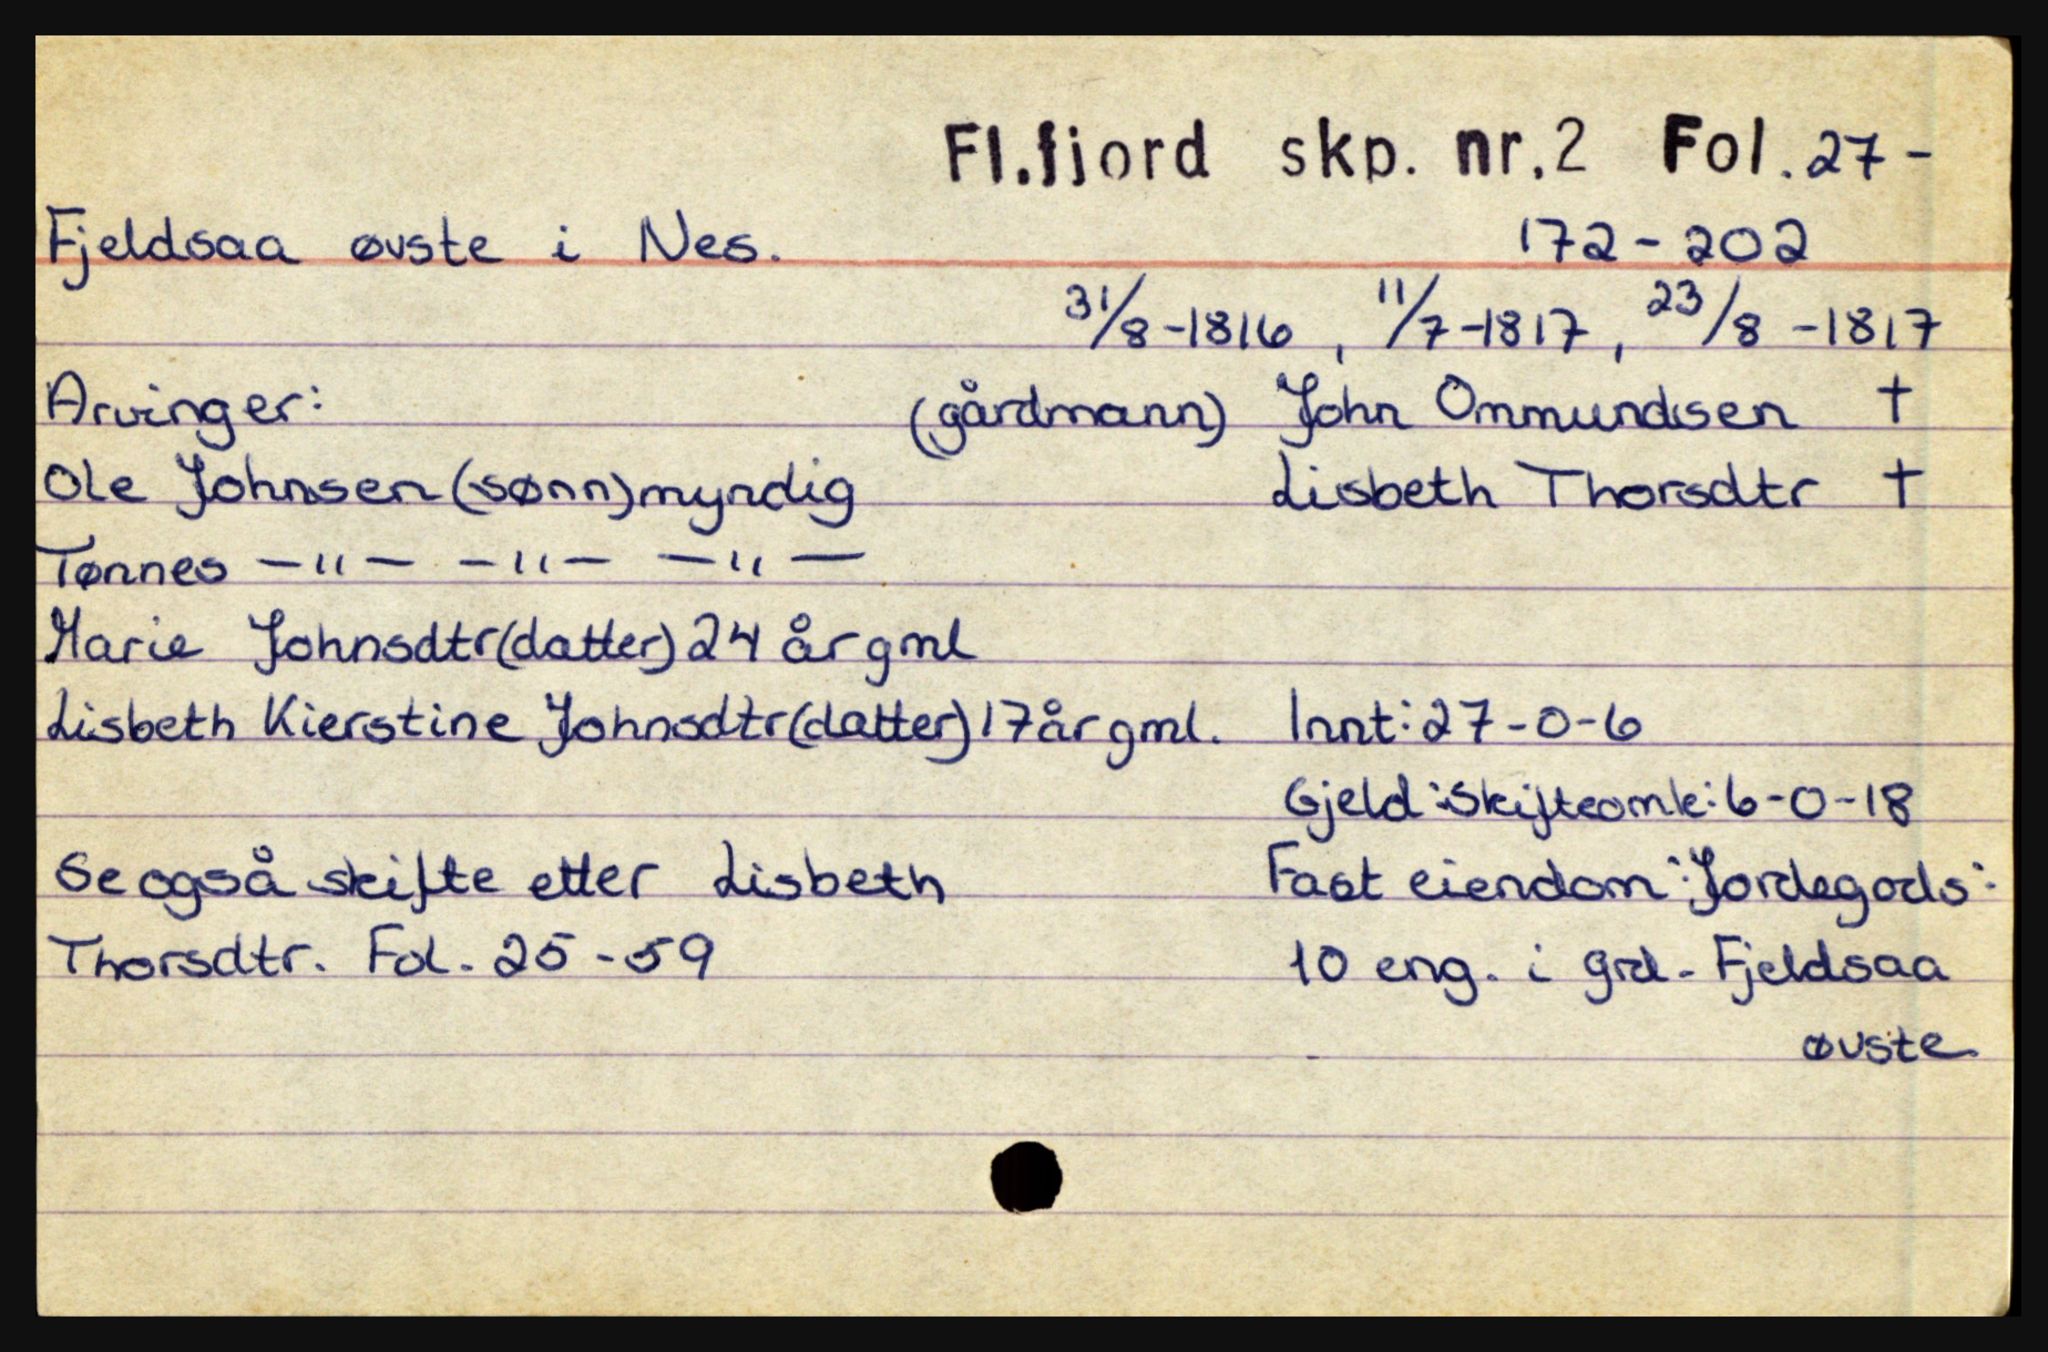 Fl.fjord skp. nr.2 Fol. 27-
Fjeldsaa øvste i Nes. 172-202
31/8-1816, 11/7-1817, 23/8-1817
Arvinger: (gårdmann) John Ommundsen †
Ole Johnsen (sønn) myndig Lisbeth Thorsdtr †
Tønnes —"— —"— —"—
Marie Johnsdtr (datter) 24 år gml
Lisbeth Kierstine Johnsdtr (datter) 17 år gml. Innt: 27-0-6
Gjeld: Skifteomk: 6-0-18
Se også skifte etter Lisbeth Fast eiendom: Jordegods:
Thorsdtr. Fol. 25-59 10 eng. i grd. Fjeldsaa
øvste